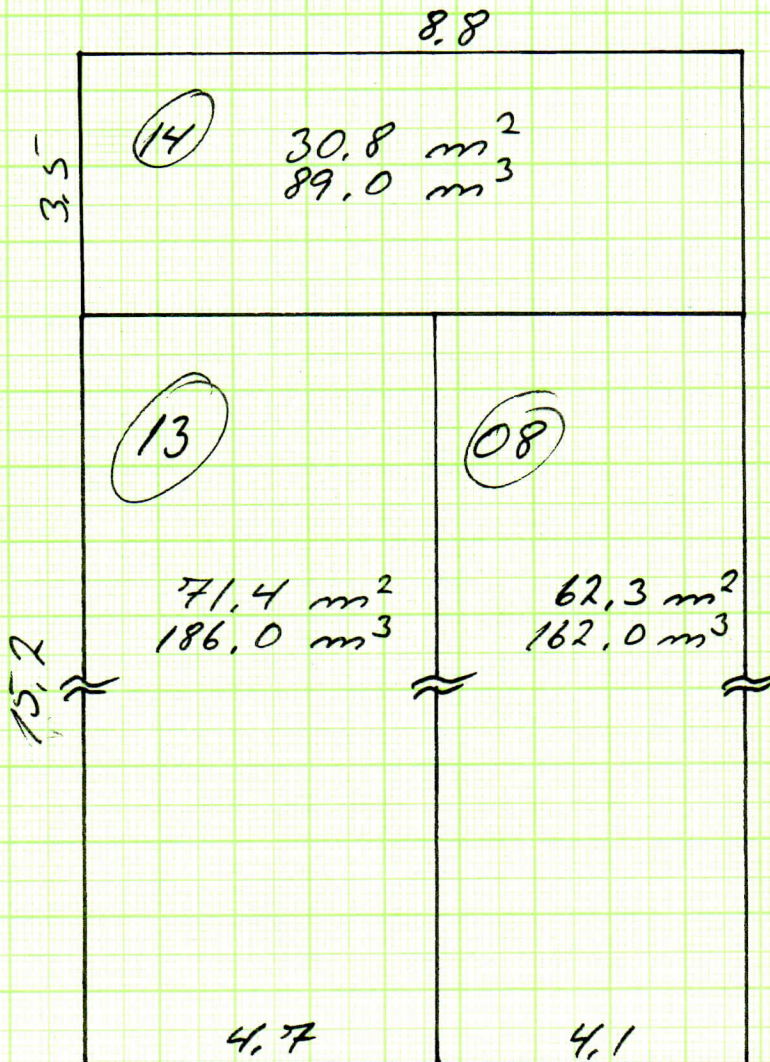 8.8
14
30.8 m²
89.0 m³
3.5
13
08
71.4 m²
186.0 m³
62.3 m²
162.0 m³
15.2
4.7
4.1